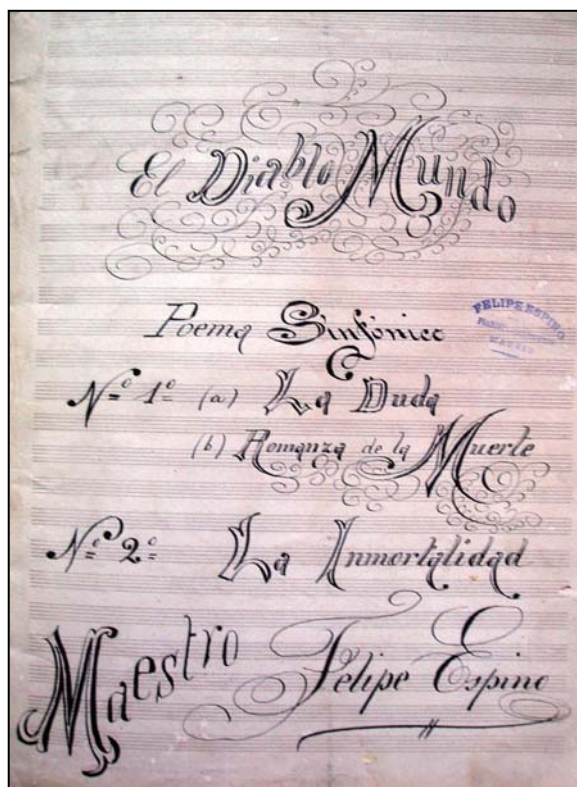 El Diablo Mundo
Poema Sinfónico
FELIPE ESPINO
MADRID
Nº 1º (a) La Duda
(b) Romanza de la Muerte
Nº 2º La Inmortalidad
Maestro Felipe Espino